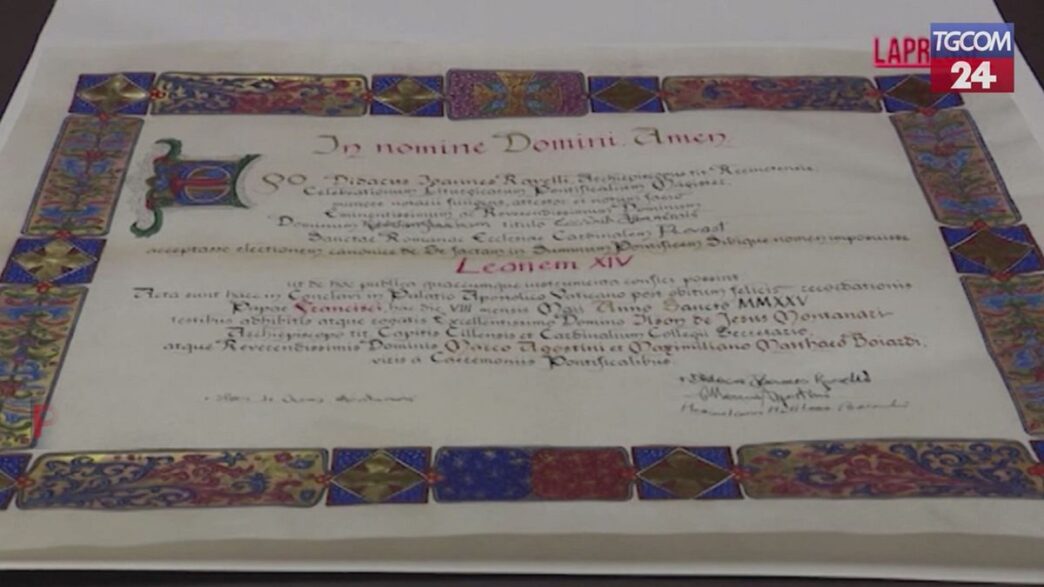 LAPR
TGCOM
24
In nomine Domini. Amen.
Ego Didacus Ioannes Ravelli, Archiepiscopus tit. Recinetensis,
Celebrationum Liturgicarum Pontificalium Magister,
munere notarii fungens, attestor et notum facio
Eminentissimum ac Reverendissimum Dominum
Dominum titulo
Sanctae Romanae Ecclesiae Cardinalem Prevost
acceptasse electionem canonice de se factam in Summum Pontificem sibique nomen imposuisse
Leonem XIV
ut de hoc publica quaecumque instrumenta confici possint.
Acta sunt haec in Conclavi in Palatio Apostolico Vaticano post obitum felicis recordationis
Papae Francisci, hac die VIII mensis Maii Anno Sancto MMXXV
testibus adhibitis atque rogatis Excellentissimo Domino Ilson de Jesus Montanari
Archiepiscopo tit. Capitis Cillensis et Cardinalium Collegii Secretario,
atque Reverendissimis Dominis Marco Agostini et Maximiliano Matthaeo Boiardi,
viris a Caeremoniis Pontificalibus.